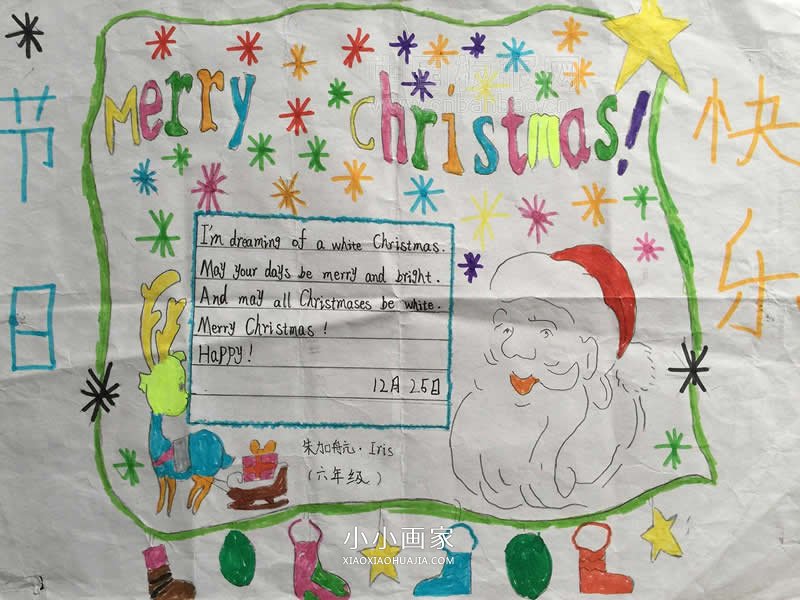 Merry Christmas!
节日
快乐
I'm dreaming of a white Christmas.
May your days be merry and bright.
And may all Christmases be white.
Merry Christmas!
Happy!
12月25日
Iris
(六年级)
小小画家
XIAOXIAOHUAJIA.COM